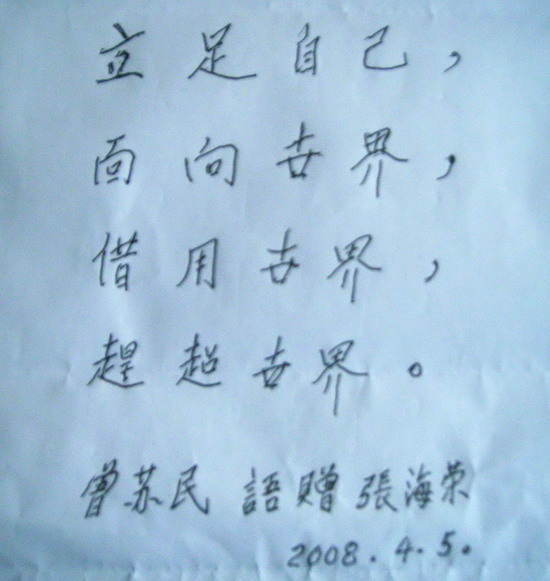 立足自己，
面向世界，
借用世界，
趕超世界。
曾苏民 語贈 張海荣
2008.4.5.